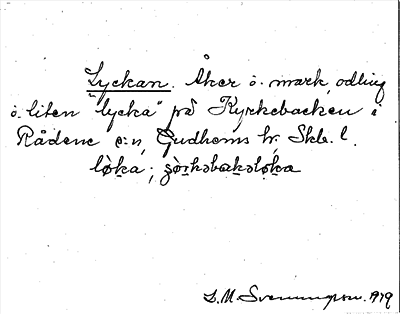 Lyckan. Åker o. mark, odling
o. liten "lycka" på Kyrkebacken i
Rådene sn, Gudhems hr, Skb. l.
lø̀ka; ʂø̀rkəbakəløka
L. M. Svenungson. 1919